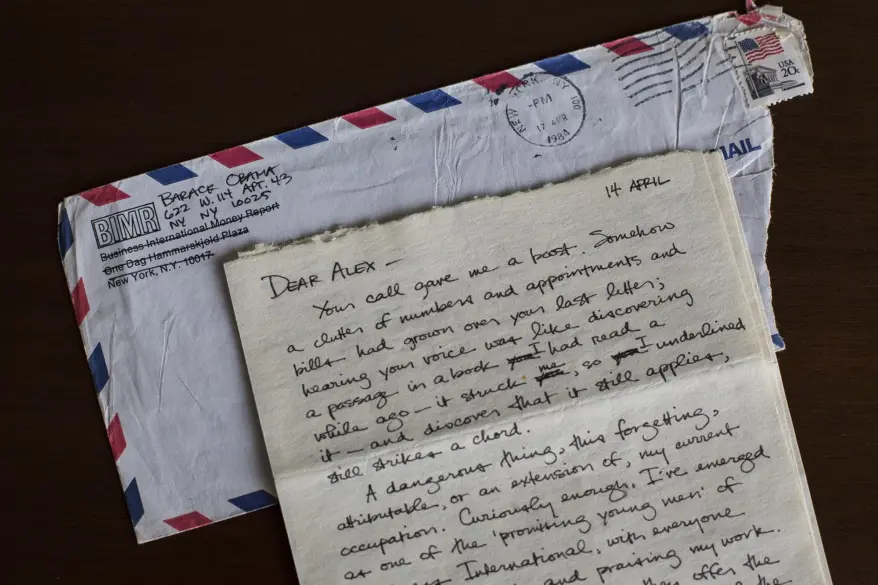 BARACK OBAMA
622 W. 114 APT. 43
NY NY 10025
BIMR
Business International Money Report
One Dag Hammarskjold Plaza
New York, N.Y. 10017
NEW YORK, NY
PM
17 APR
1984
100
USA
20c
MAIL
14 APRIL
DEAR ALEX —
Your call gave me a boost. Somehow
a clutter of numbers and appointments and
bills had grown over your last letter;
hearing your voice was like discovering
a passage in a book you I had read a
while ago — it struck you me, so you I underlined
it — and discover that it still applies,
still strikes a chord.
A dangerous thing, this forgetting,
attributable, or an extension of, my current
occupation. Curiously enough, I've emerged
as one of the 'promising young men' of
International, with everyone
and praising my work.
they offer the
the